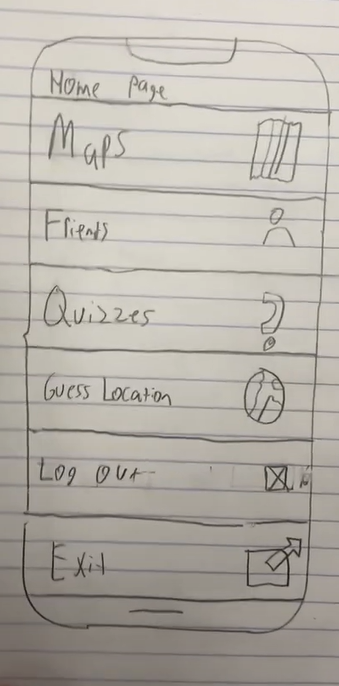 Home Page
Maps
Friends
Quizzes
Guess Location
Log out
Exit